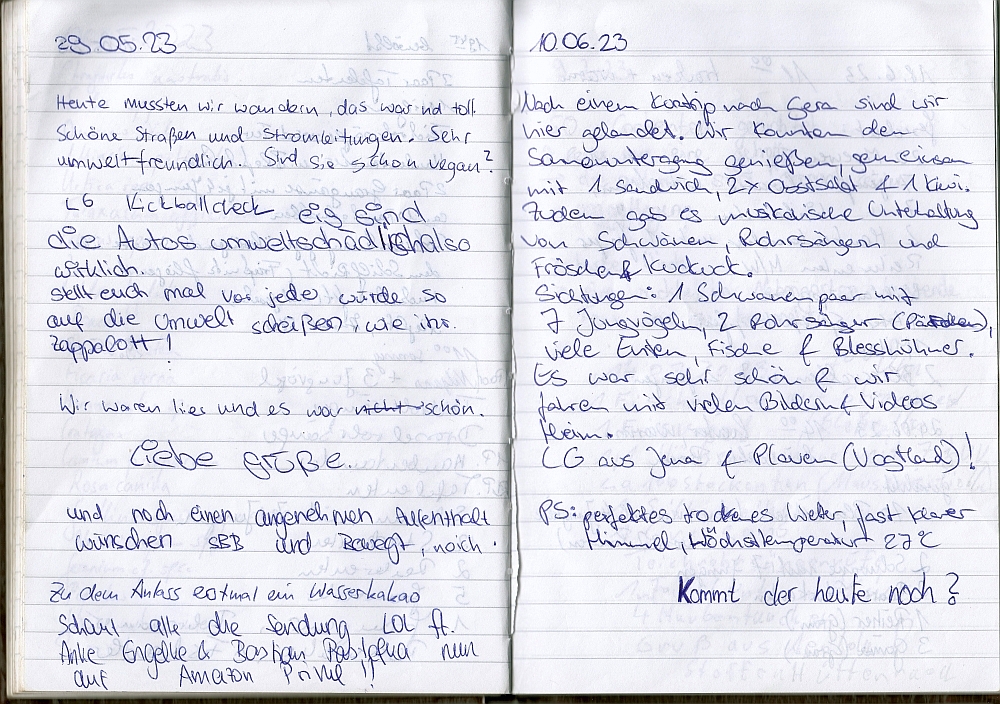 29.05.23
Heute mussten wir wandern, das war nd toll.
Schöne Straßen und Stromleitungen. Sehr
umweltfreundlich. Sind Sie schon vegan?
LG Kickballcheck eig sind
die Autos umweltschädlich also
wirklich.
stellt euch mal vor jede würde so
auf die Umwelt scheißen, wie ihr.
Zappalott!
Wir waren hier und es war nicht schön.
Liebe grüße.
und noch einen angenehmen Aufenthalt
wünschen SEB und Bewegt, noich.
Zu dem Anlass erstmal ein Wasserkakao
Schaut alle die Sendung LOL ft.
Anke Engelke & Bastian Pastefka nun
auf Amazon Prime!!
10.06.23
Nach einem Kurztrip nach Gera sind wir
hier gelandet. Wir konnten den
Sonnenuntergang genießen, gemeinsam
mit 1 Sandwich, 2x Obstsalat & 1 Kiwi.
Zudem gab es musikalische Unterhaltung
von Schwänen, Rohrsängern und
Fröschen & Kuckuck.
Sichtungen: 1 Schwanenpaar mit
7 Jungvögeln, 2 Rohrsänger (Pärchen),
viele Enten, Fische & Blesshühner.
Es war sehr schön & wir
fahren mit vielen Bildern & Videos
Heim.
LG aus Jena & Plauen (Vogtland)!
PS: perfektes trockenes Wetter, fast klarer
Himmel, Höchsttemperatur 27°C
Kommt der heute noch?